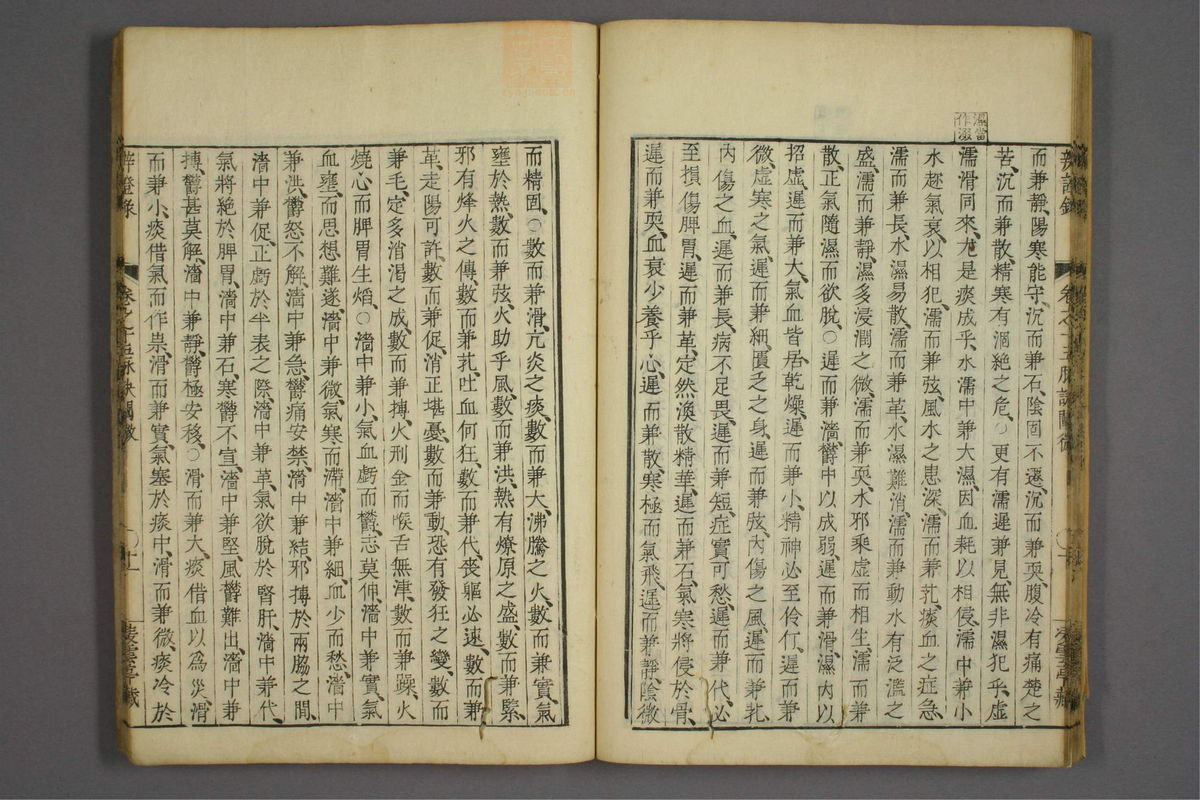 濕當
作澀
而兼靜、陽寒能守、沉而兼石、陰固不遷、沉而兼耎、腹冷有痛楚之
苦、沉而兼散、精寒有涸絕之危、○更有濡遲兼見、無非濕犯乎虛
濡滑同來、尤是痰成乎水、濡中兼大、濕因血耗以相侵、濡中兼小
水趂氣衰以相犯、濡而兼弦、風水之患深、濡而兼芤、痰血之症急、
濡而兼長、水濕易散、濡而兼革、水濕難消、濡而兼動、水有泛濫之
盛、濡而兼靜、濕多浸潤之微、濡而兼耎、水邪乘虛而相生、濡而兼
散、正氣隨濕而欲脫、○遲而兼濇、鬱中以成弱、遲而兼滑、濕內以
招虛、遲而兼大、氣血皆居乾燥、遲而兼小、精神必至伶仃、遲而兼
微、虛寒之氣、遲而兼細、匱乏之身、遲而兼弦、內傷之風、遲而兼芤、
內傷之血、遲而兼長、病不足畏、遲而兼短、症實可愁、遲而兼代、必
至損傷脾胃、遲而兼革、定然渙散精華、遲而兼石、氣寒將侵於骨、
遲而兼耎、血衰少養乎心、遲而兼散、寒極而氣飛、遲而兼靜、陰微
而精固、○數而兼滑、亢炎之痰、數而兼大、沸騰之火、數而兼實、氣
壅於熱、數而兼弦、火助乎風、數而兼洪、熱有燎原之盛、數而兼緊、
邪有烽火之傳、數而兼芤、吐血何狂、數而兼代、喪軀必速、數而兼
革、走陽可許、數而兼促、消正堪憂、數而兼動、恐有發狂之變、數而
兼毛、定多消渴之成、數而兼搏、火刑金而喉舌無津、數而兼躁、火
燒心而脾胃生焰、○濇中兼小、氣血虧而鬱志莫伸、濇中兼實、氣
血壅、而思想難遂、濇中兼微、氣寒而滯、濇中兼細、血少而愁、濇中
兼洪、鬱怒不解、濇中兼急、鬱痛安禁、濇中兼結、邪搏於兩脇之間、
濇中兼促、正虧於半表之際、濇中兼革、氣欲脫於腎肝、濇中兼代、
氣將絕於脾胃、濇中兼石、寒鬱不宣、濇中兼堅、風鬱難出、濇中兼
搏、鬱甚莫解、濇中兼靜、鬱極安移、○滑而兼大、痰借血以為災、滑
而兼小、痰借氣而作祟、滑而兼實、氣塞於痰中、滑而兼微、痰冷於